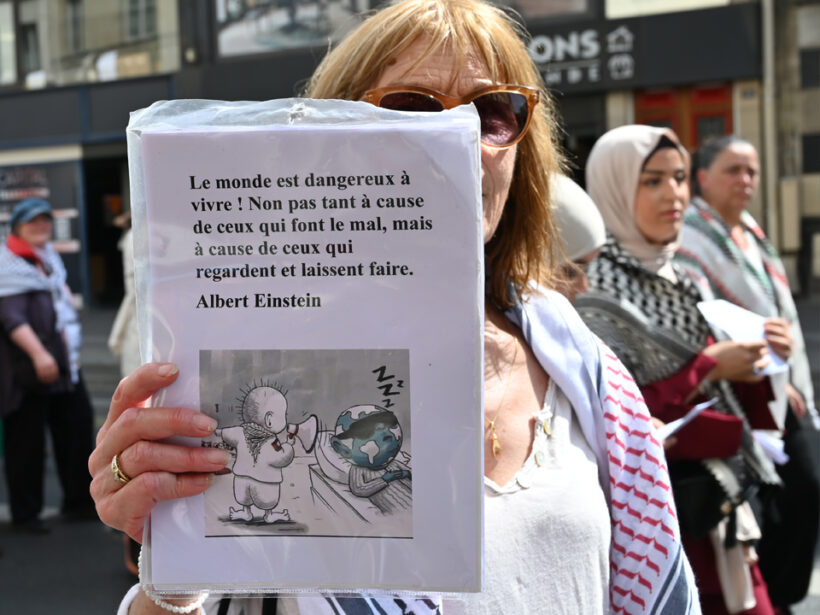 ONS
Le monde est dangereux à
vivre ! Non pas tant à cause
de ceux qui font le mal, mais
à cause de ceux qui
regardent et laissent faire.
Albert Einstein
ZZZ